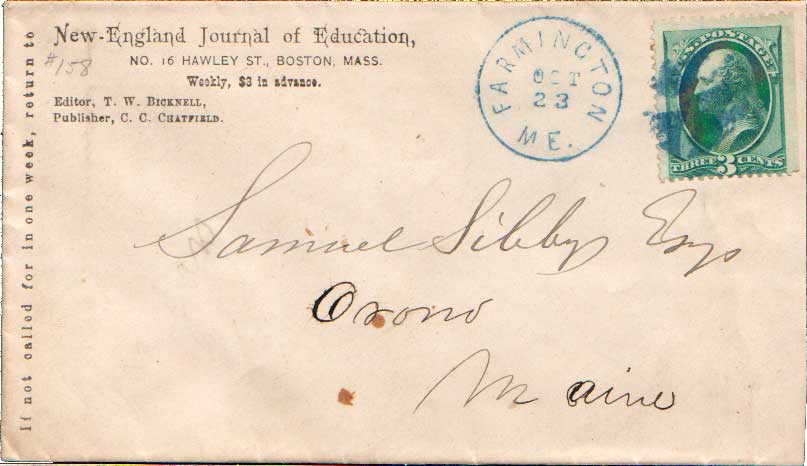 New-England Journal of Education,
NO. 16 HAWLEY ST., BOSTON, MASS.
Weekly, $3 in advance.
Editor, T. W. BICKNELL,
Publisher, C. C. CHATFIELD.
#158
If not called for in one week, return to
FARMINGTON
OCT
23
ME.
U.S. POSTAGE
THREE 3 CENTS
Samuel Libbys Esqs
Orono
Maine